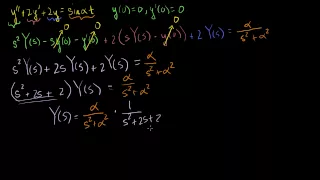 y'' + 2y' + 2y = sin αt   y(0) = 0, y'(0) = 0
s² Y(s) - s y(0) - y'(0) + 2 (s Y(s) - y(0)) + 2 Y(s) = α / (s² + α²)
s² Y(s) + 2s Y(s) + 2 Y(s) = α / (s² + α²)
(s² + 2s + 2) Y(s) = α / (s² + α²)
Y(s) = α / (s² + α²) · 1 / (s² + 2s + 2)